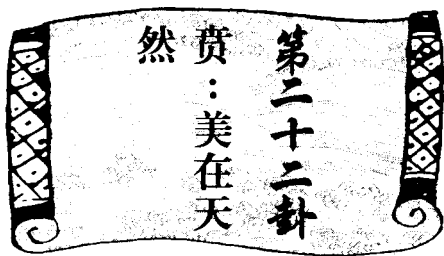 第二十二卦
贲：美在天
然